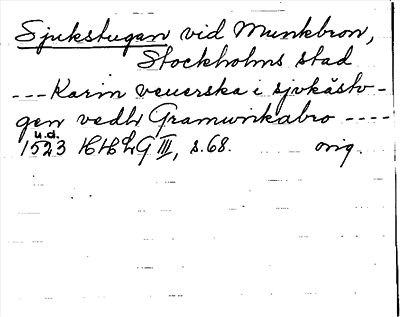 Sjukstugan vid Munkbron,
Stockholms stad
--- Karin veuerska i sjvkästv-
gen vedh Gramunkabro ----
u.d.
1523 HH G III, s. 68. orig.